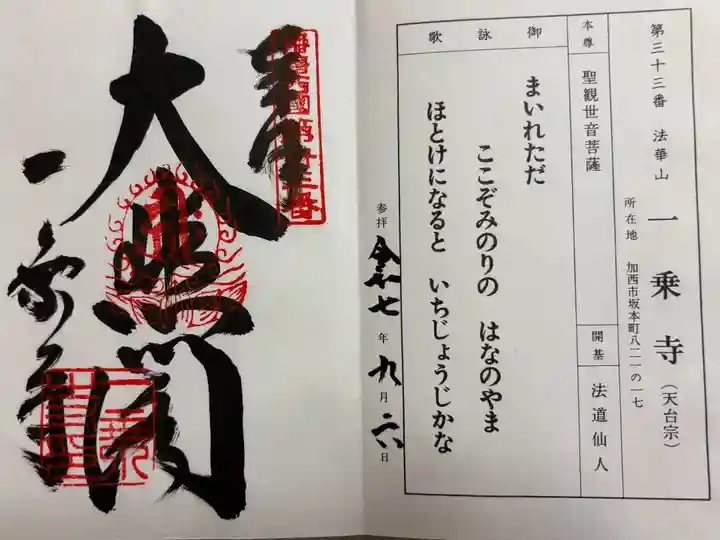 第三十三番 法華山 一乗寺（天台宗）
所在地 加西市坂本町八二一の一七
本尊 聖観世音菩薩
開基 法道仙人
御詠歌
まいれただ
ここぞみのりの はなのやま
ほとけになると いちじょうじかな
参拝 令和七年九月二六日
奉拝
大悲閣
一乗寺